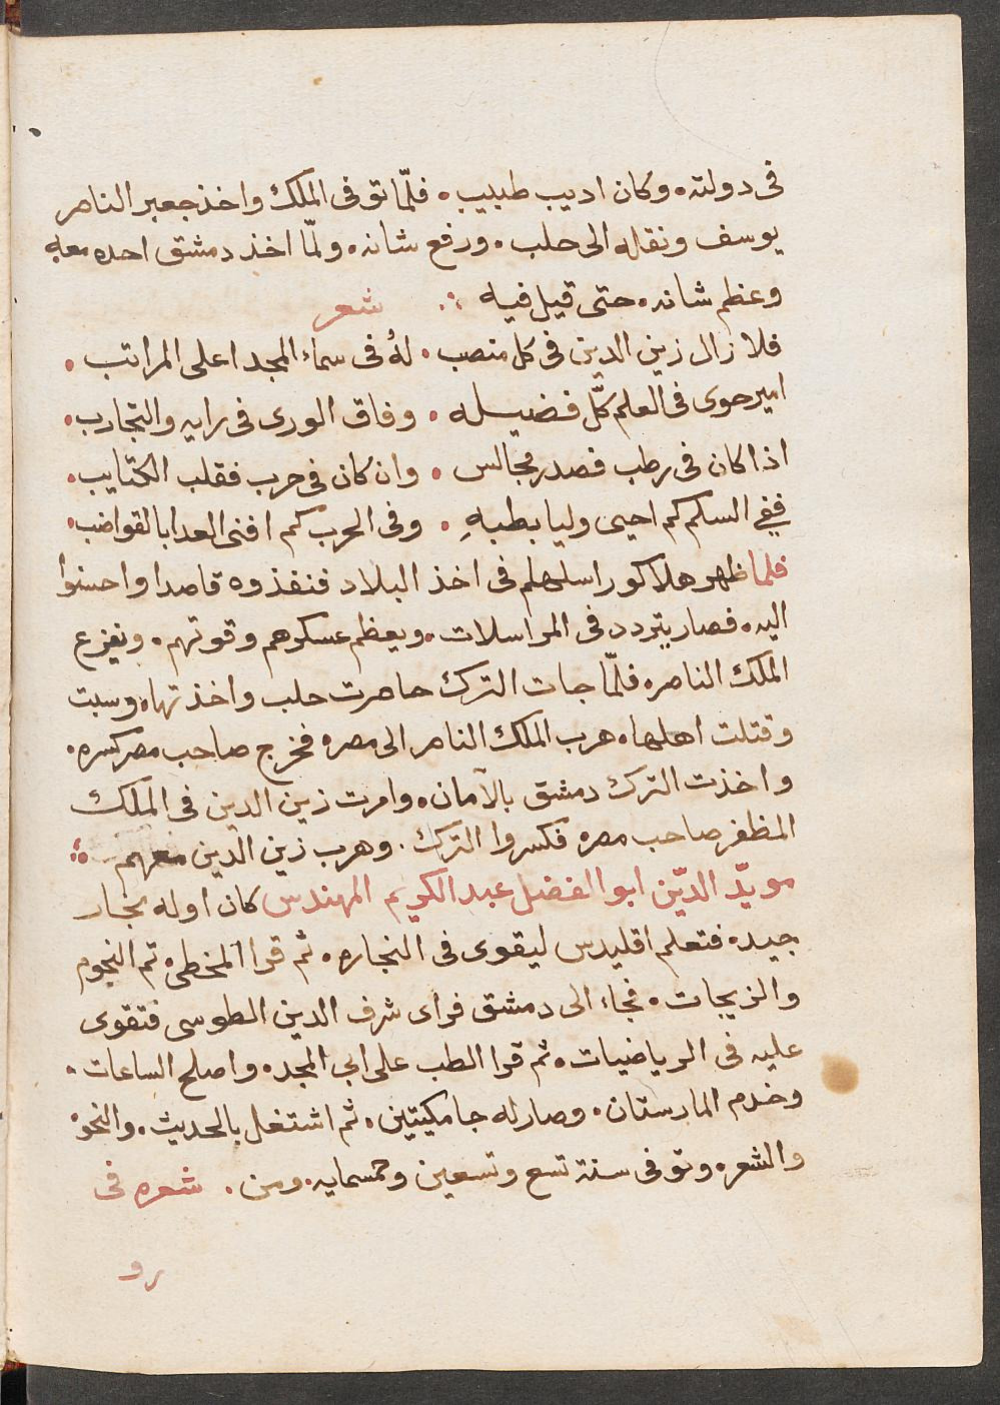 فى دولته. وكان اديب طبيب. فلمّا توفى الملك واخذ جعبر الناصر
يوسف ونقله الى حلب. ورفع شانه. ولمّا اخذ دمشق احده معه
وعظم شانه. حتى قيل فيه ∴ شعر
فلا زال زين الدين فى كل منصب. لهُ فى سماء المجد اعلى المراتب.
امير حوى فى العلم كلّ فضيله. وفاق الورى فى رايه والتجارب.
اذا كان فى رطب فصدر مجالس. وان كان فى حرب فقلب الكتايب.
ففي السلم كم احيى وليا بطبهِ. وفى الحرب كم افنى العدا بالقواضب.
فلما ظهر هلاكو راسلهلم فى اخذ البلاد فنفذوه قاصدا واحسنوا
اليه. فصار يتردد فى المراسلات. ويعظم عسكرهم وقوتهم. ويفزع
الملك الناصر. فلمّا جات الترك حاصرت حلب واخذتها. وسبت
وقتلت اهلها. هرب الملك الناصر الى مصر. فخرج صاحب مصر كسره.
واخذت الترك دمشق بالآمان. وامرت زين الدين فى الملك
المظفر صاحب مصر. فكسروا الترك. وهرب زين الدين معهم ∴
مويّد الدّين ابو الفضل عبد الكريم المهندس كان اوله نجار
جيد. فتعلم اقليدس ليقوى فى النجاره. ثم قرا المخطى. ثم النجوم
والزيجات. فجاء الى دمشق فراى شرف الدين الطوسى فتقوى
عليه فى الرياضيات. ثم قرا الطب على ابي المجد. واصلح الساعات.
وخدم المارستان. وصار له جامكيتين. ثم اشتغل بالحديث. والنحو.
والشعر. وتوفى سنة تسع وتسعين وخمسمايه. ومن. شعره فى